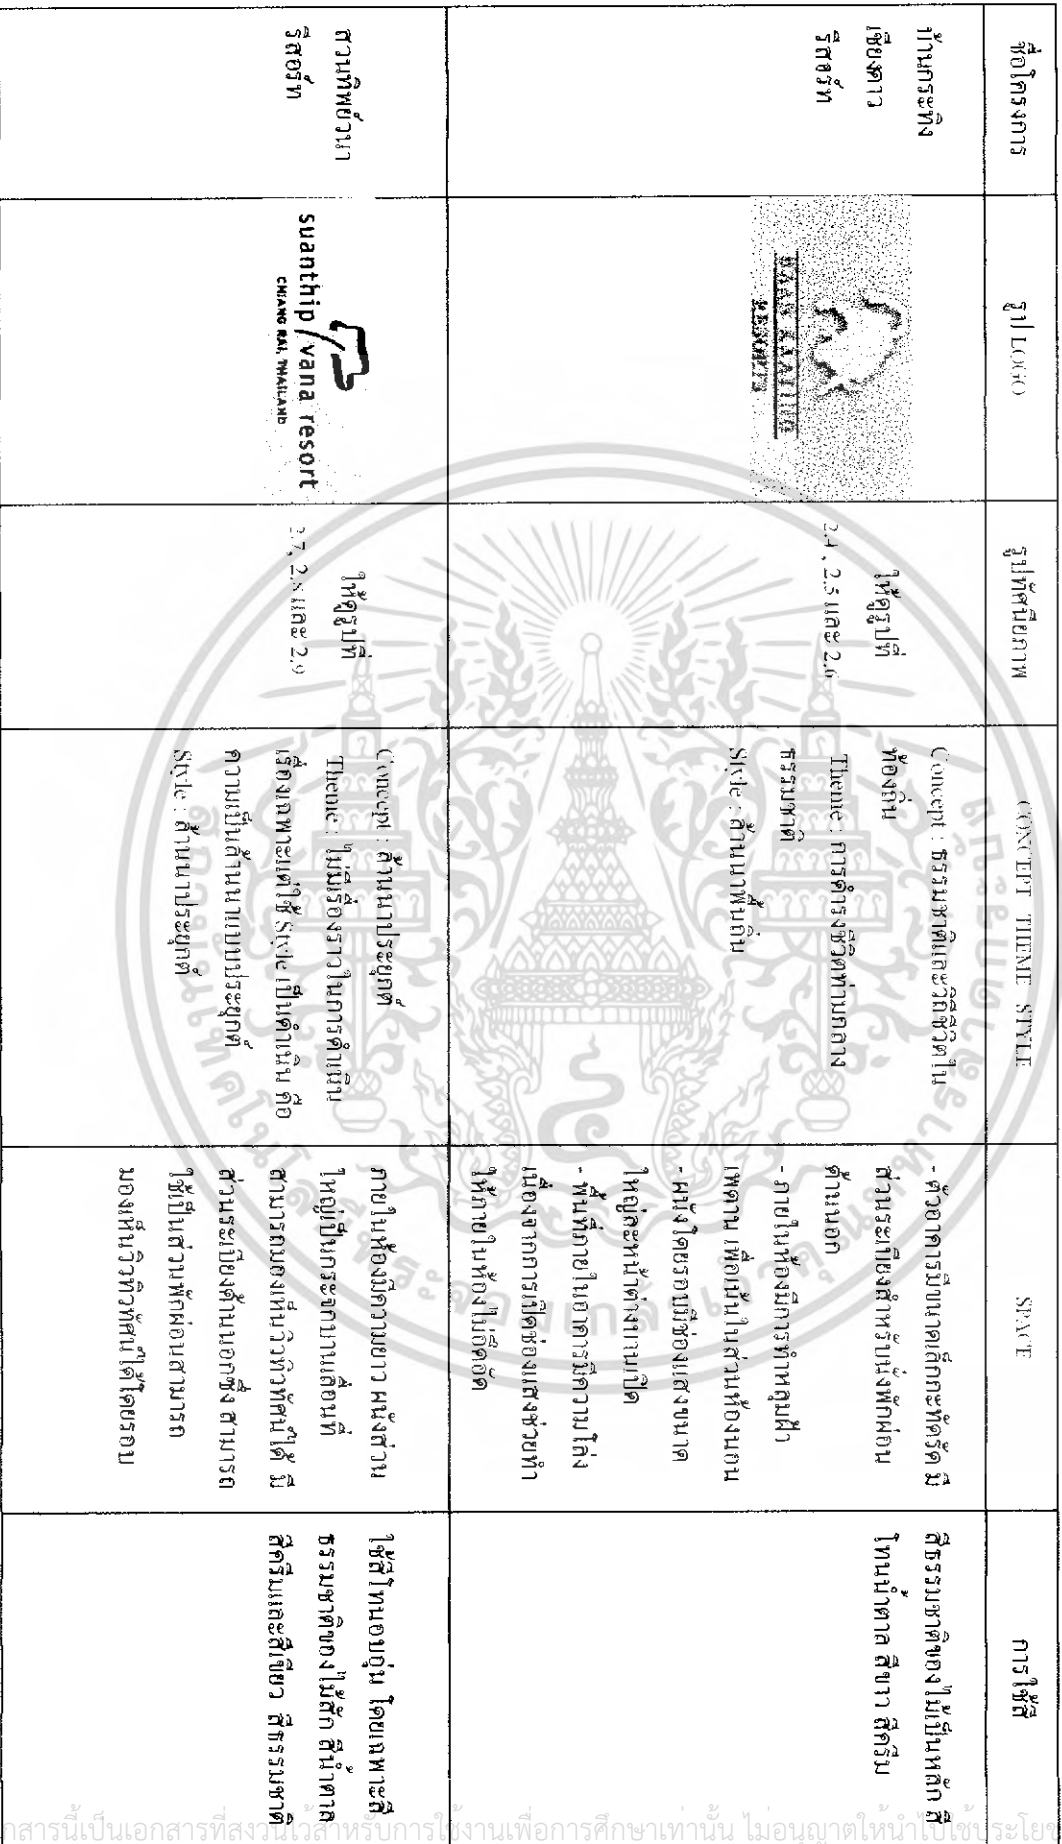 ชื่อโครงการ
รูป LOGO
รูปทัศนียภาพ
CONCEPT THEME STYLE
SPACE
การใช้สี
บ้านกระทิง
เชียงดาว
รีสอร์ท
BAAN KRATING
RESORTS
ให้ดูรูปที่
2.4 , 2.5 และ 2.6
Concept : ธรรมชาติและวิถีชีวิตใน
ท้องถิ่น
Theme : การดำรงชีวิตท่ามกลาง
ธรรมชาติ
Style : ล้านนาพื้นถิ่น
- ตัวอาคารมีขนาดเล็กกะทัดรัด มี
ส่วนระเบียงสำหรับนั่งพักผ่อน
ด้านนอก
- ภายในห้องมีการทำหลุมฝ้า
เพดาน เพื่อเน้นในส่วนห้องนอน
- ผนังโดยรอบมีช่องแสงขนาด
ใหญ่และหน้าต่างบานเปิด
- พื้นที่ภายในอาคารมีความโล่ง
เนื่องจากการเปิดช่องแสงช่วยทำ
ให้ภายในห้องไม่อึดอัด
สีธรรมชาติของไม้เป็นหลัก สี
โทนน้ำตาล สีขาว สีครีม
สวนทิพย์วนา
รีสอร์ท
suanthip vana resort
CHIANG RAI, THAILAND
ให้ดูรูปที่
2.7, 2.8 และ 2.9
Concept : ล้านนาประยุกต์
Theme : ไม่มีเรื่องราวในการดำเนิน
เรื่องเฉพาะแต่ใช้ Style เป็นดำเนิน คือ
ความเป็นล้านนาแบบประยุกต์
Style : ล้านนาประยุกต์
ภายในห้องมีความยาว ผนังส่วน
ใหญ่เป็นกระจกบานเลื่อนที่
สามารถมองเห็นวิวทิวทัศน์ได้ มี
ส่วนระเบียงด้านนอกซึ่งสามารถ
ใช้เป็นส่วนพักผ่อนสามารถ
มองเห็นวิวทิวทัศน์ได้โดยรอบ
ใช้สีโทนอบอุ่น โดยเฉพาะสี
ธรรมชาติของไม้สัก สีน้ำตาล
สีครีมและสีเขียว สีธรรมชาติ
กสารนี้เป็นเอกสารที่สงวนไว้สำหรับการใช้งานเพื่อการศึกษาเท่านั้น ไม่อนุญาตให้นำไปใช้ประโยช